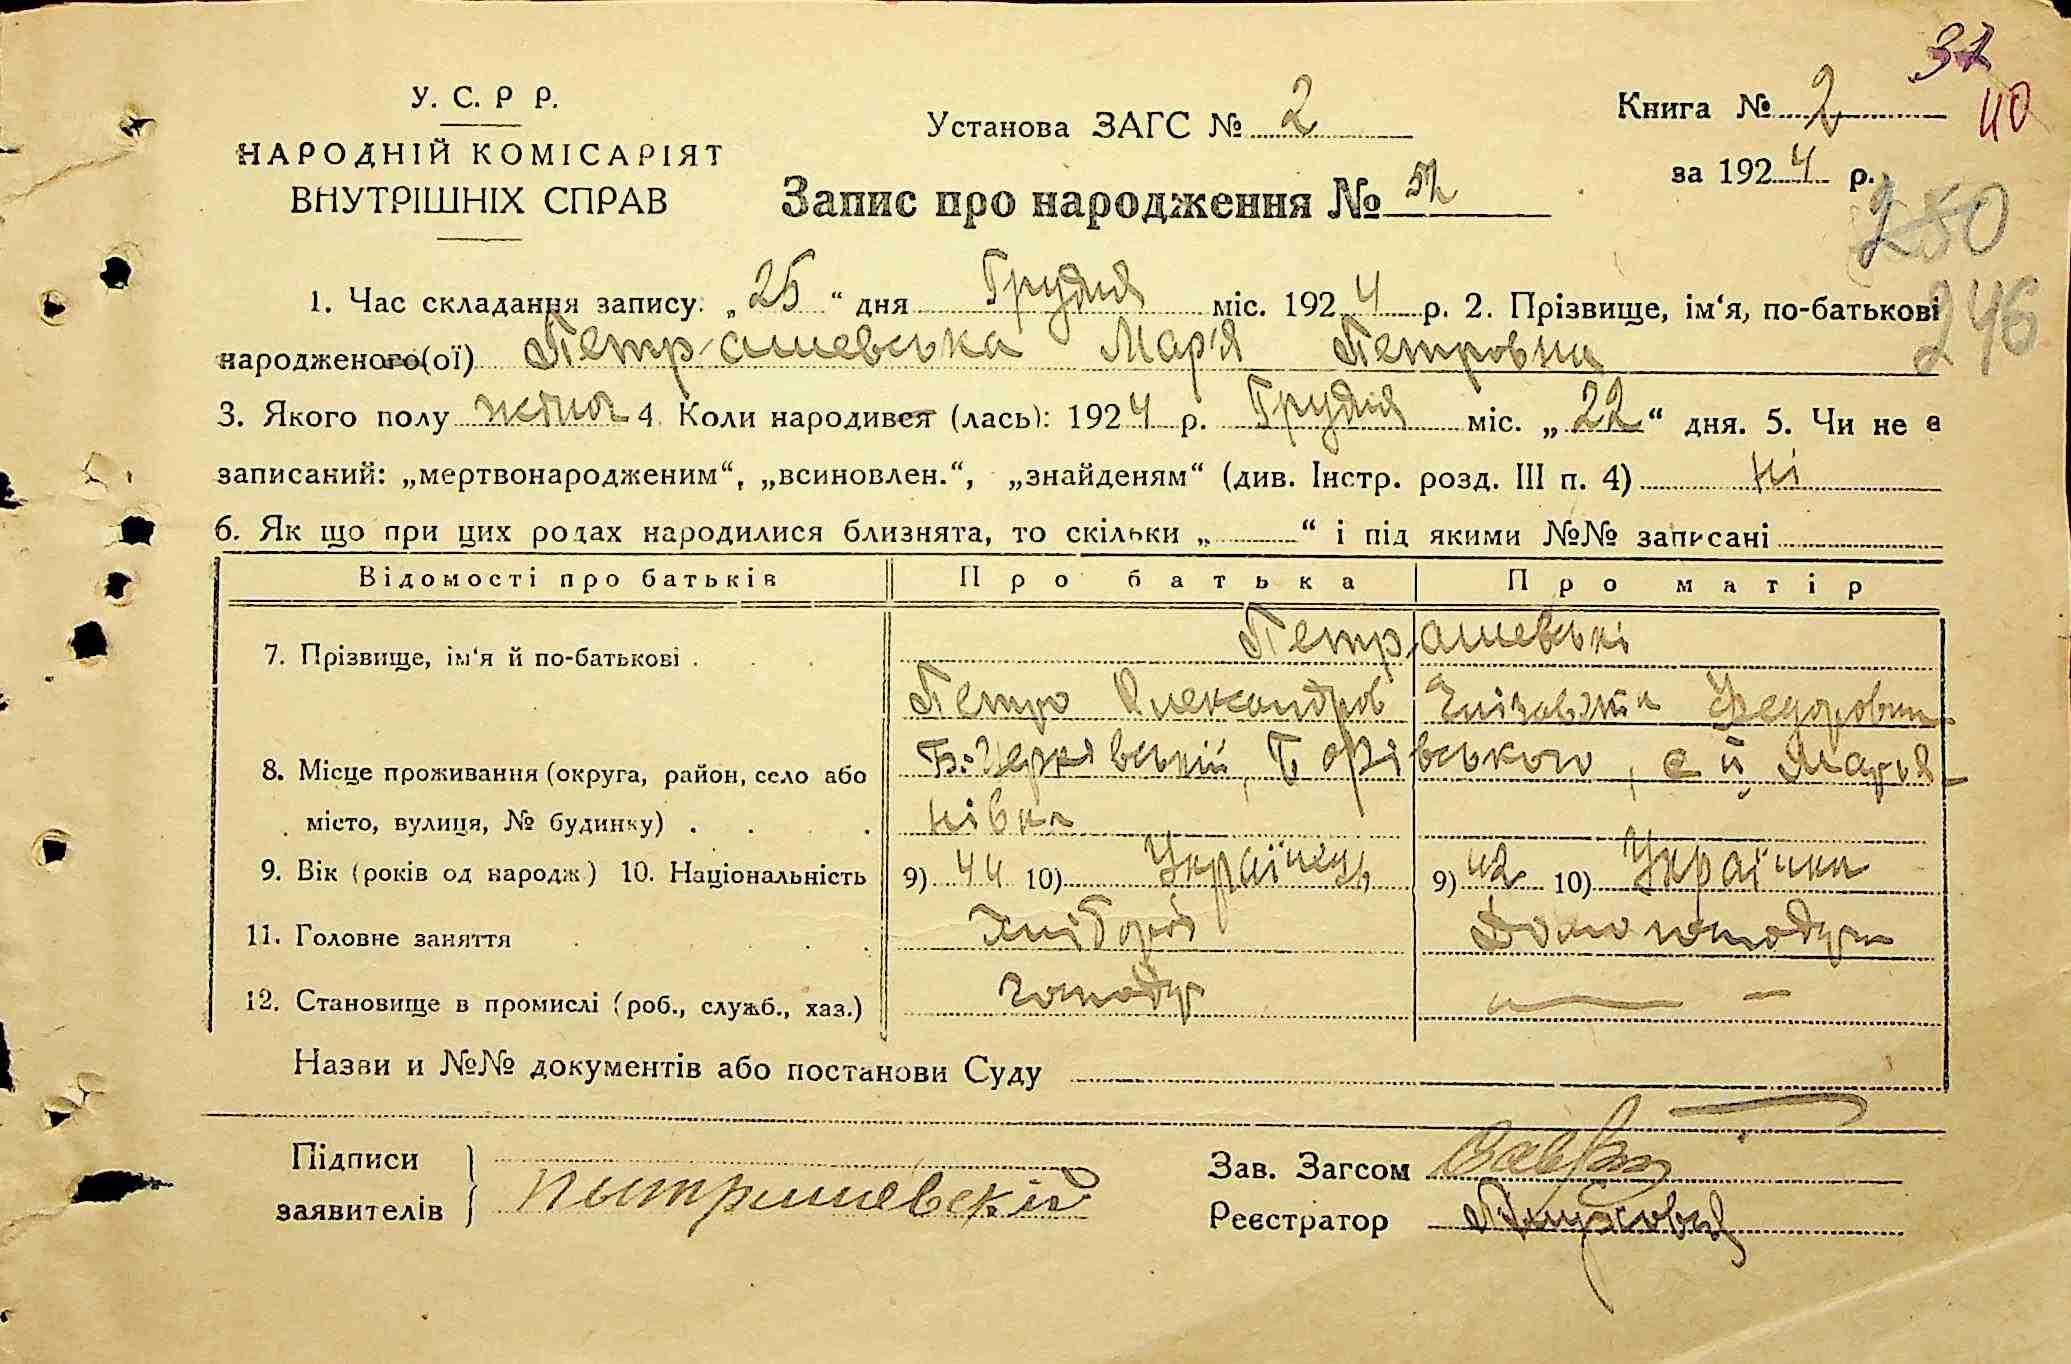 37
40
У. С. Р Р.
НАРОДНІЙ КОМІСАРІЯТ
ВНУТРІШНІХ СПРАВ
Установа ЗАГС № 2
Книга № 2
за 1924 р.
Запис про народження № 52
250
246
1. Час складання запису: „25“ дня Грудня міс. 1924 р. 2. Прізвище, ім‘я, по-батькові
народженого(ої) Петрашевська Мар'я Петровна
3. Якого полу жіноч 4. Коли народився (лась): 1924 р. Грудня міс. „22“ дня. 5. Чи не є
записаний: „мертвонародженим“, „всиновлен.“, „знайденям“ (див. Інстр. розд. III п. 4) Ні
6. Як що при цих родах народилися близнята, то скільки „ “ і під якими №№ записані
Відомості про батьків Про батька Про матір
Петрашевські
7. Прізвище, ім‘я й по-батькові .
Петро Олександров Єлізавэта Федоровна
8. Місце проживання (округа, район, село або Б-Церківській, , с Мар'я-
місто, вулиця, № будинку) . нівка
9. Вік (років од народж) 10. Національність 9) 44 10) Українець 9) 42 10) Українка
11. Головне заняття Хлібороб
12. Становище в промислі (роб., служб., хаз.) господар
Назви и №№ документів або постанови Суду
Підписи
заявителів Пытрашевскій
Зав. Загсом
Реєстратор